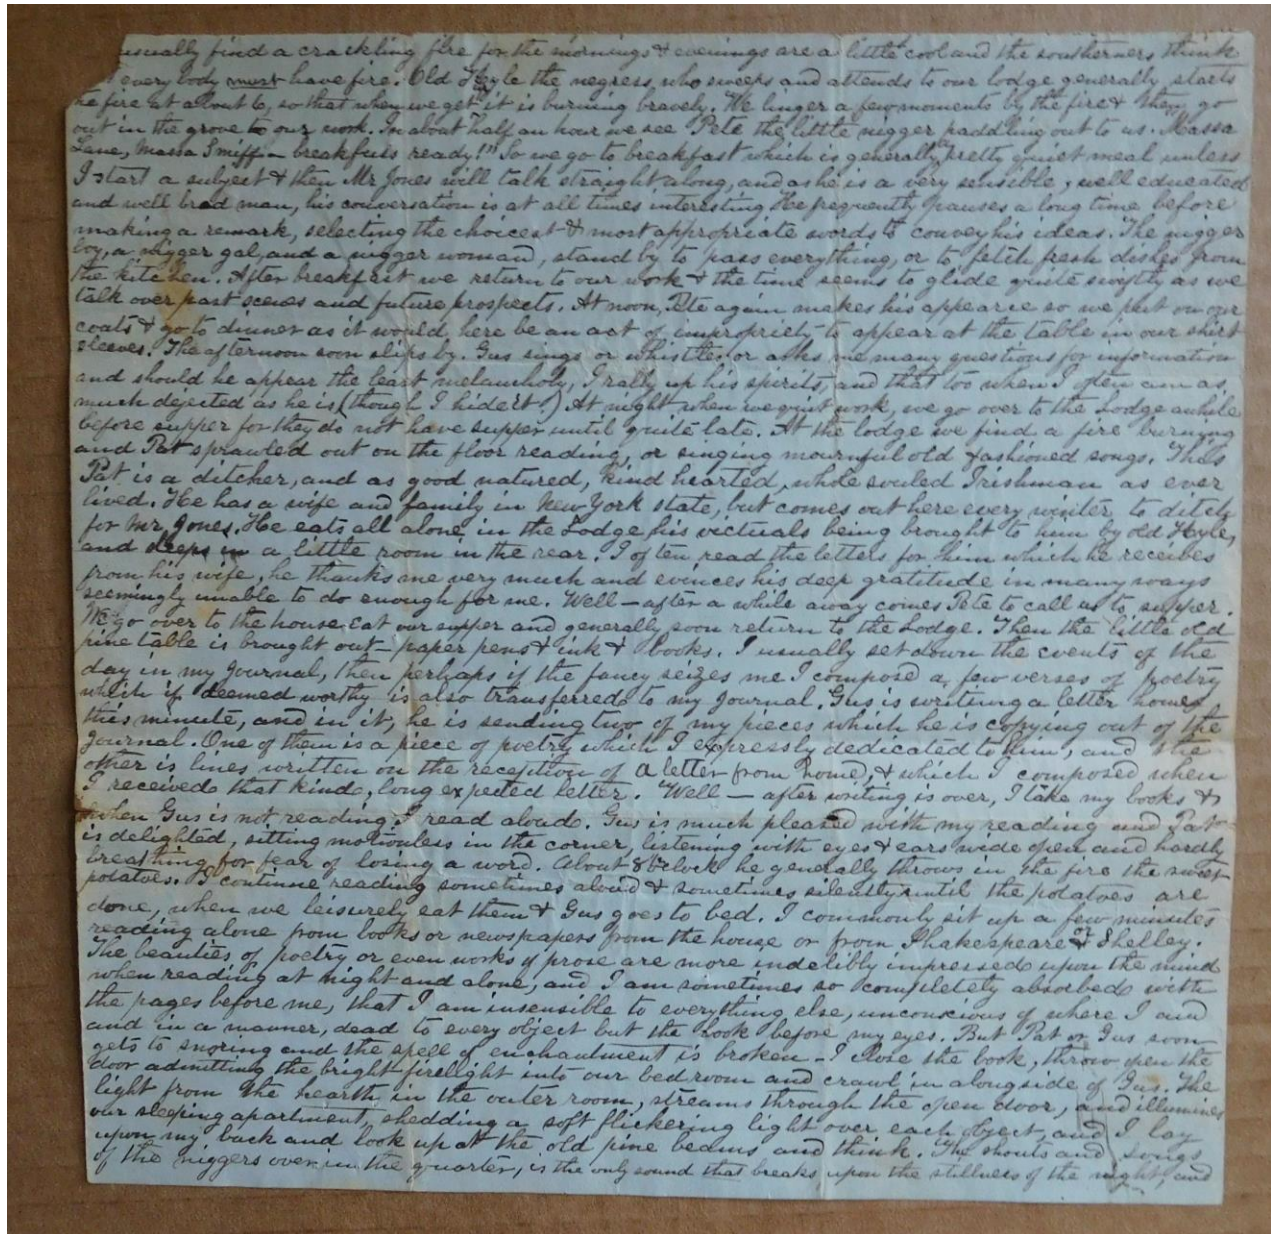 usually find a crackling fire for the mornings & evenings are a little cool and the southerners think
every body must have fire. Old Hyle the negress who sweeps and attends to our lodge generally starts
the fire at about 6, so that when we get it is burning bravely. We linger a few moments by the fire & then go
out in the grove to our work. In about half an hour we see Pete the little nigger paddling out to us. "Massa
Lane, Massa Smiff – breakfuss ready!" So we go to breakfast which is generally a pretty quiet meal unless
I start a subject & then Mr Jones will talk straight along, and as he is a very sensible, well educated
and well bred man, his conversation is at all times interesting He frequently pauses a long time before
making a remark, selecting the choicest & most appropriate words to convey his ideas. The nigger
boy, a nigger gal, and a nigger woman, stand by to pass everything, or to fetch fresh dishes from
the kitchen. After breakfast we return to our work & the time seems to glide quite swiftly as we
talk over past scenes and future prospects. At noon, Pete again makes his appearce so we put on our
coats & go to dinner as it would here be an act of impropriety to appear at the table in our shirt
sleeves. The afternoon soon slips by. Gus sings or whistles or asks me many questions for information
and should he appear the least melancholy, I rally up his spirits, and that too when I often am as
much dejected as he is (though I hide it!) At night when we quit work, we go over to the Lodge awhile
before supper for they do not have supper until quite late. At the lodge we find a fire burning
and Pat sprawled out on the floor reading, or singing mournful old fashioned songs. This
Pat is a ditcher, and as good natured, kind hearted, whole souled Irishman as ever
lived. He has a wife and family in New York state, but comes out here every winter to ditch
for Mr Jones. He eats all alone in the Lodge his victuals being brought to him by old Hyle,
and sleeps in a little room in the rear. I often read the letters for him which he receives
from his wife, he thanks me very much and evinces his deep gratitude in many ways
seemingly unable to do enough for me. Well – after a while away comes Pete to call us to supper.
We go over to the house eat our supper and generally soon return to the Lodge. Then the little old
pine table is brought out – paper pens & ink & books. I usually set down the events of the
day in my journal, then perhaps if the fancy seizes me I compose a few verses of poetry
which if deemed worthy is also transferred to my Journal. Gus is writing a letter home
this minute, and in it, he is sending two of my pieces which he is copying out of the
Journal. One of them is a piece of poetry which I expressly dedicated to him, and the
other is lines written on the reception of a letter from home, & which I composed when
I received that kind, long expected letter. Well – after writing is over, I take my books &
when Gus is not reading I read aloud. Gus is much pleased with my reading and Pat
is delighted, sitting motionless in the corner, listening with eyes & ears wide open and hardly
breathing for fear of losing a word. About 8 o'clock he generally throws in the fire the sweet
potatoes. I continue reading sometimes aloud & sometimes silently until the potatoes are
done, when we leisurely eat them & Gus goes to bed. I commonly sit up a few minutes
reading alone from books or newspapers from the house or from Shakespeare or Shelley.
The beauties of poetry or even works of prose are more indelibly impressed upon the mind
when reading at night and alone, and I am sometimes so completely absorbed with
the pages before me, that I am insensible to everything else, unconscious of where I am
and in a manner, dead to every object but the book before my eyes. But Pat or Gus soon
gets to snoring and the spell of enchantment is broken – I close the book, throw open the
door admitting the bright firelight into our bed room and crawl in alongside of Gus. The
light from the hearth in the outer room, streams through the open door, and illumines
our sleeping apartment, shedding a soft flickering light over each object, and I lay
upon my back and look up at the old pine beams and think. The shouts and songs
of the niggers over in the quarter, is the only sound that breaks upon the stillness of the night, and